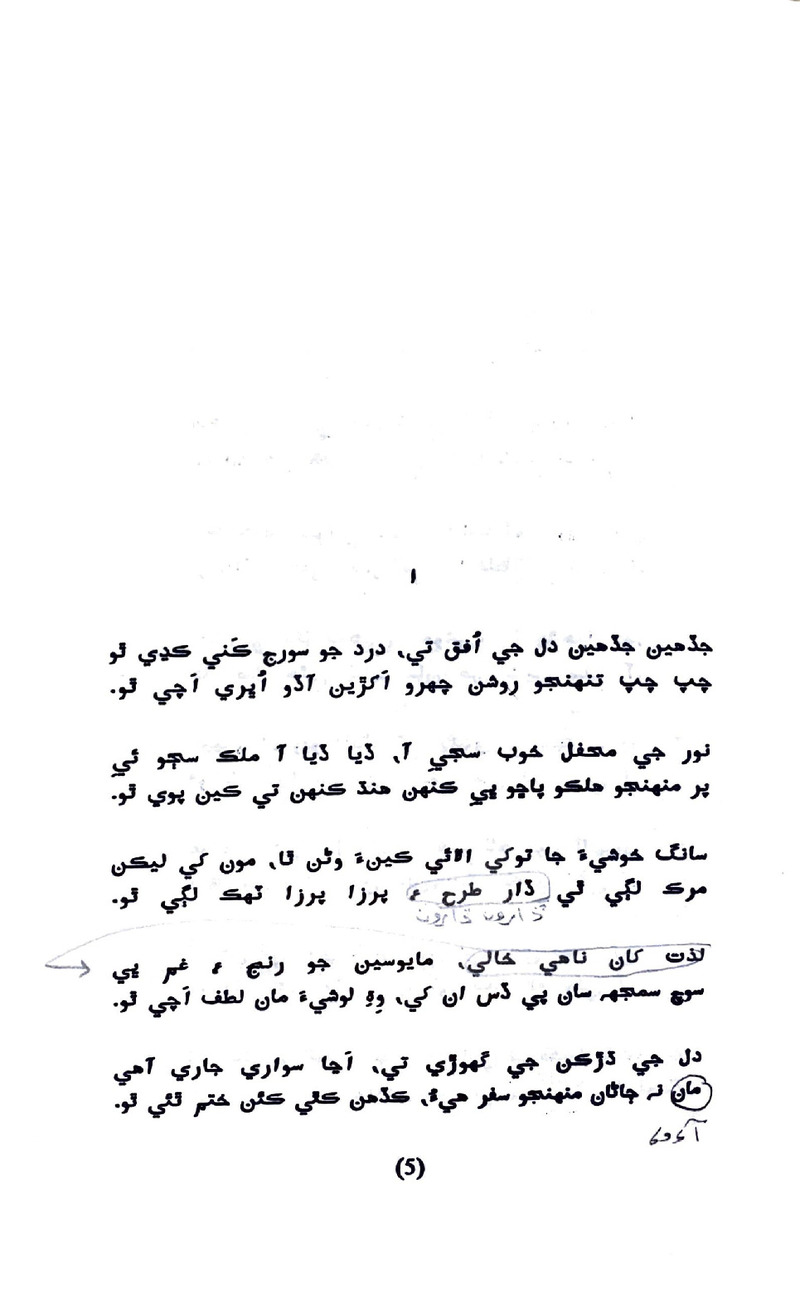 ۱
جڏهين جڏهين دل جي اُفق تي، درد جو سورج ڪَني ڪڍي ٿو
چپ چپ تنهنجو روشن چهرو اَکڙين آڏو اُڀري اَچي ٿو.
نور جي محفل خوب سجي آ، ڏيا ڏيا آ ملڪ سڄو ئي
پر منهنجو هلڪو پاڇو ڀي ڪنهن هنڌ ڪنهن تي ڪين پوي ٿو.
سانگ خوشيءَ جا توکي الائي ڪينءَ وڻن ٿا، مون کي ليڪن
مرڪ لڳي ٿي ڏار طرح ۽ پرزا پرزا ٽهڪ لڳي ٿو.
ڌارون ڌارون
لذت کان ناهي خالي، مايوسين جو رنج ۽ غم ڀي
سوچ سمجهہ سان پي ڏس ان کي، وِهِ لوشيءَ مان لطف اَچي ٿو.
دل جي ڌڙڪن جي گهوڙي تي، اَڃا سواري جاري آهي
مان نہ ڄاڻان منهنجو سفر هيءُ، ڪڏهن ڪٿي ڪئن ختم ٿئي ٿو.
(5)